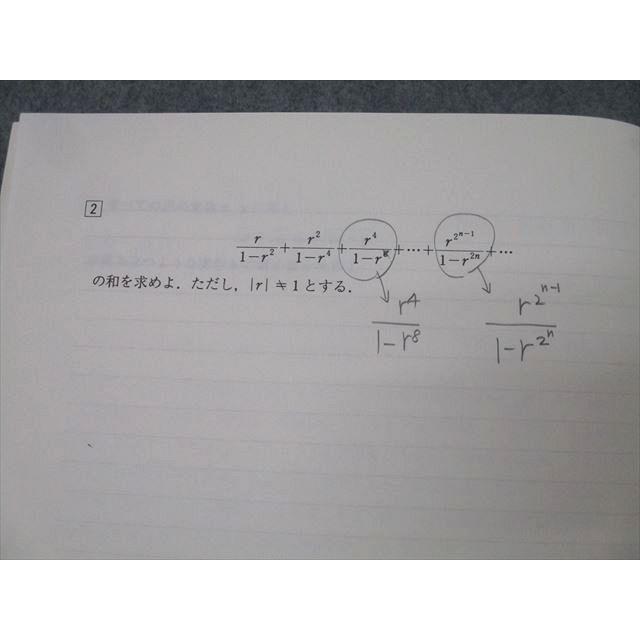 2
r/(1-r^2) + r^2/(1-r^4) + r^4/(1-r^8) + ⋯ + r^{2^{n-1}}/(1-r^{2n}) + ⋯
の和を求めよ．ただし，|r|≠1とする．
r^4/(1-r^8) r^{2^{n-1}}/(1-r^{2^n})